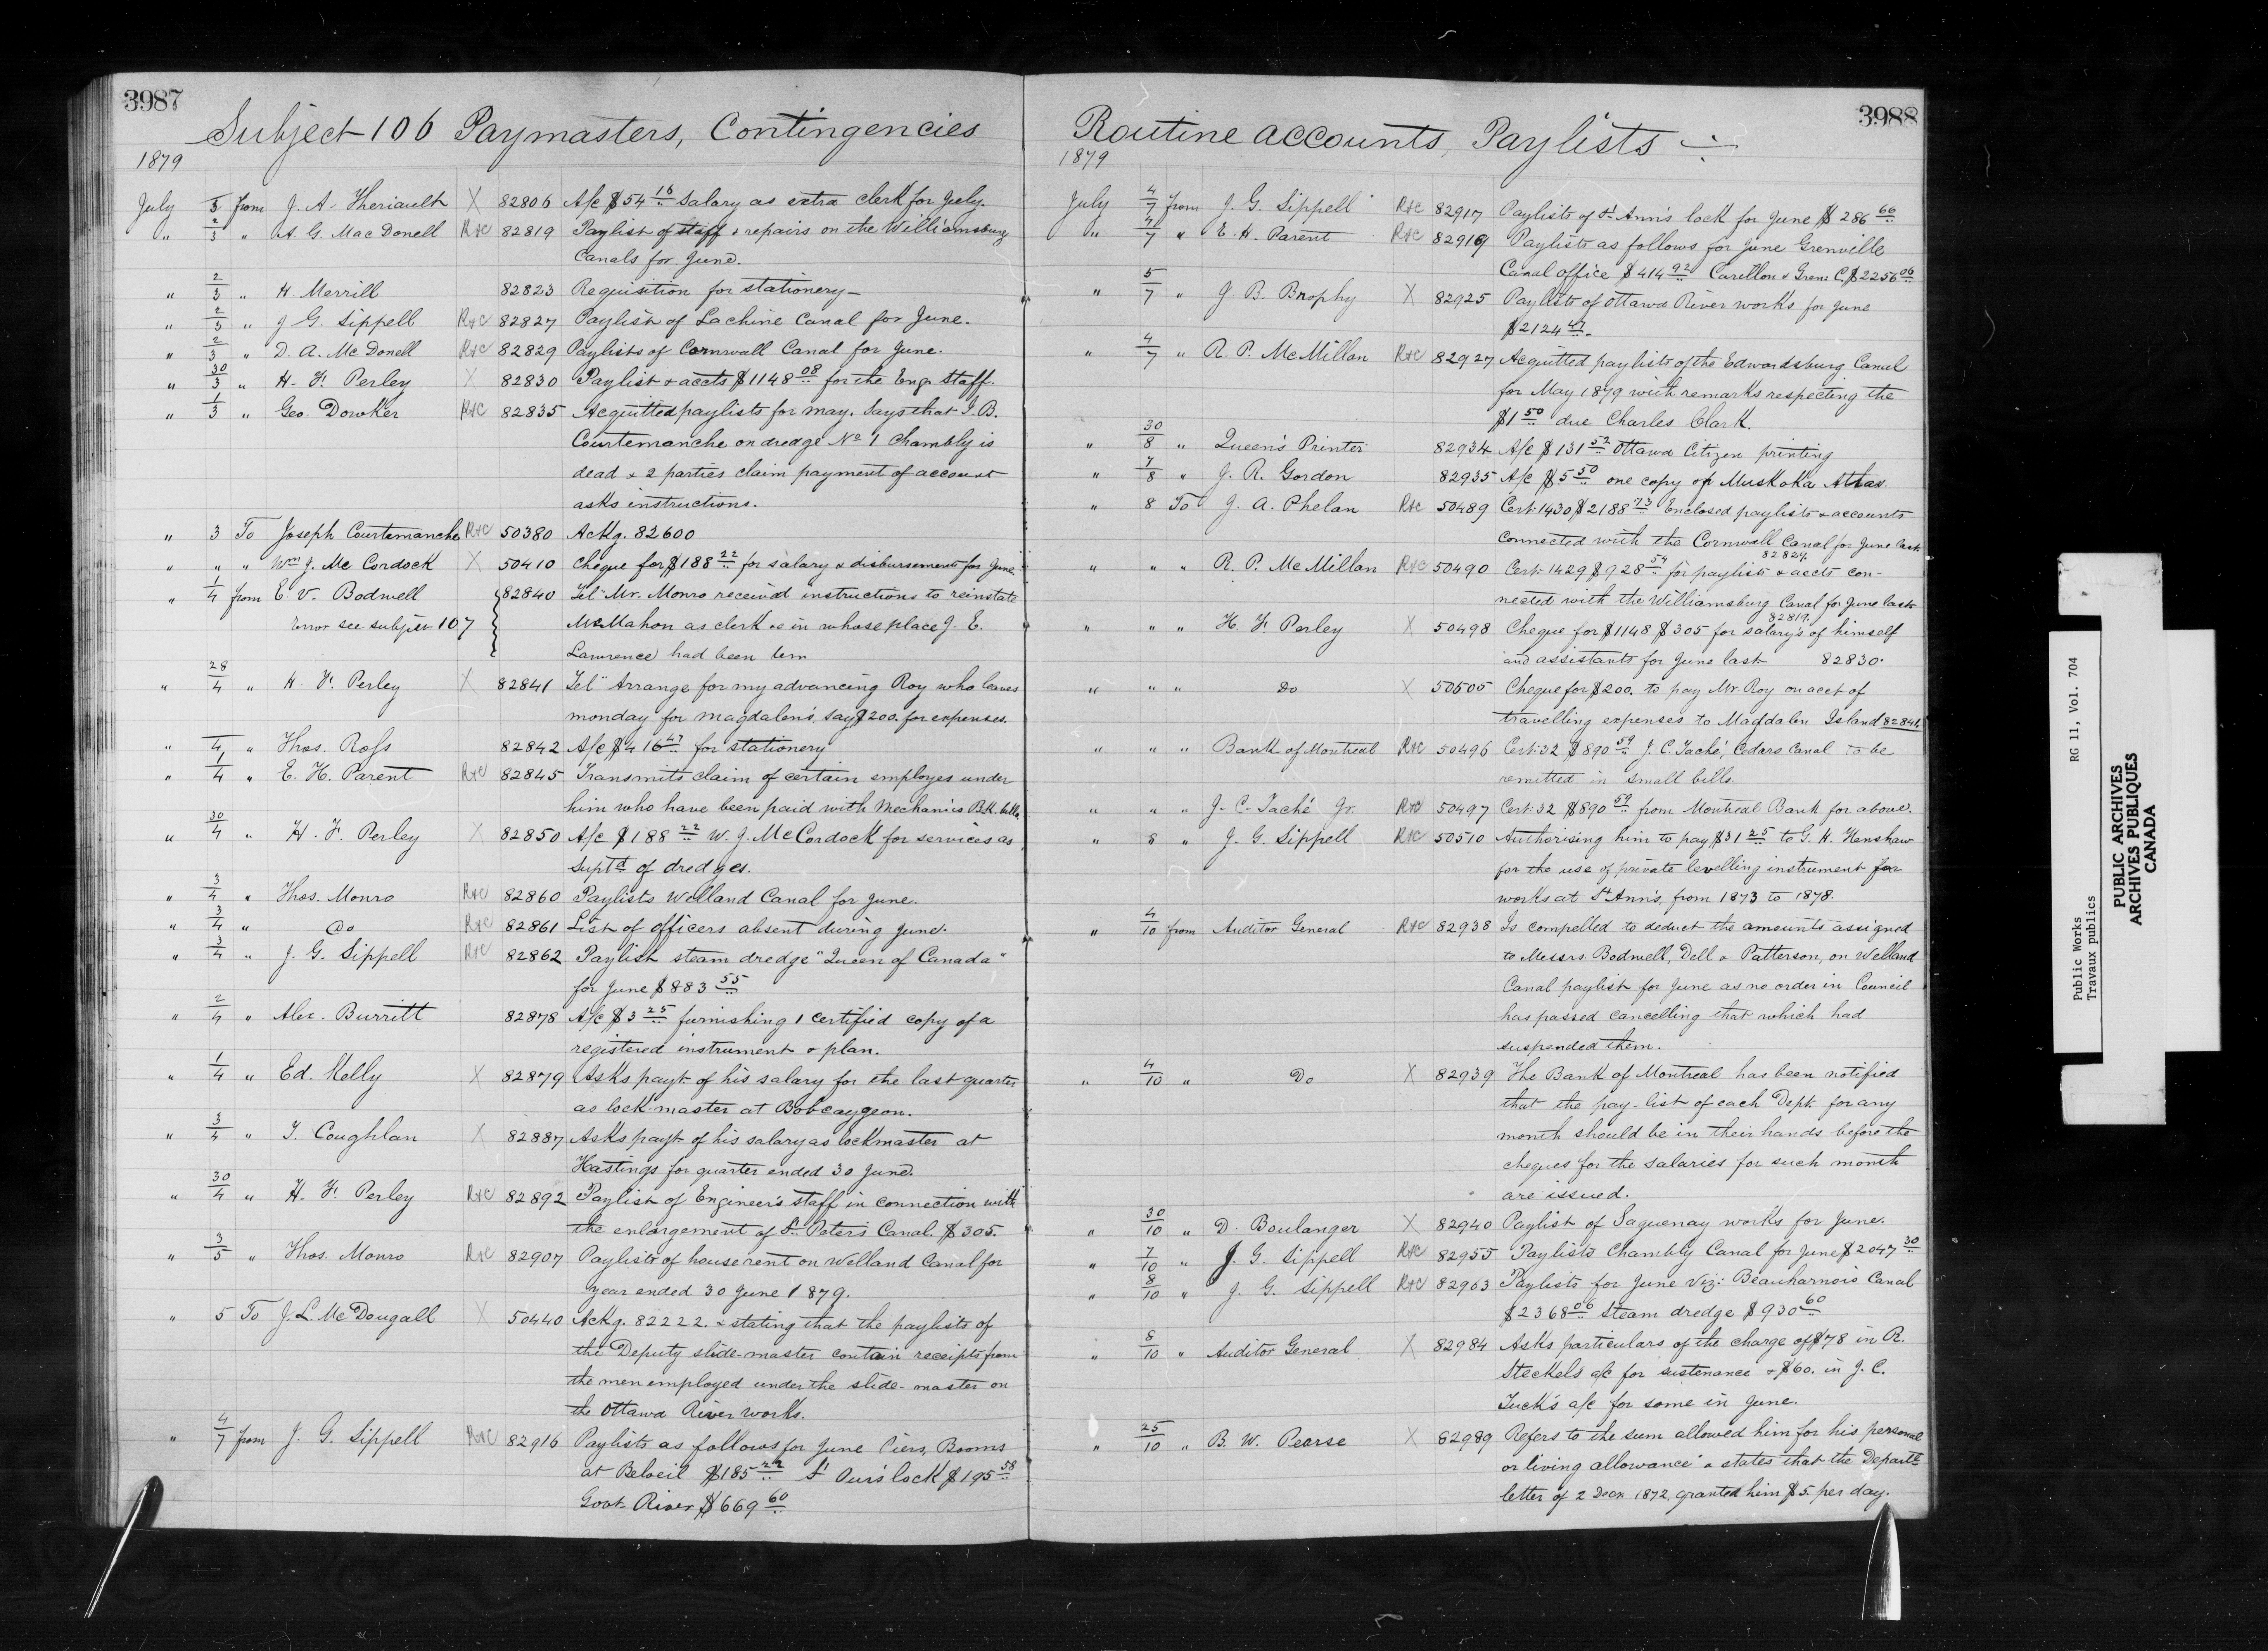 3987
Subject 106 Paymasters, Contingencies
1879
July 3 from J. A. Theriault X 82806 A/c $54 16 Salary as extra clerk for July.
" 2/3 " A. G. MacDonell R+C 82819 Paylist of staff & repairs on the Williamsburg
Canals for June.
" 2/3 " H. Merrill 82823 Requisition for stationery —
" 2/3 " J G. Sippell R+C 82827 Paylist of Lachine Canal for June.
" 2/3 " D. A. McDonell R+C 82829 Paylists of Cornwall Canal for June.
" 30/3 " H. F. Perley X 82830 Paylist & accts $1148 08 for the Eng. Staff.
" 1/3 " Geo. Dowker R+C 82835 Acquitted paylists for may. Says that J. B.
Courtemanche on dredge No 1 Chambly is
dead & 2 parties claim payment of account
asks instructions.
" 3 To Joseph Courtemanche R+C 50380 Ackg. 82600
" " " Wm J. McCordock X 50410 Cheque for $188 22 for salary & disbursement for June.
" 1/4 from E. V. Bodwell 82840 Tel. Mr. Monro received instructions to reinstate
Error see subject 107 McMahon as clerk &c in whose place J. E.
Lawrence had been tem
" 28/4 " H. F. Perley X 82841 Tel " Arrange for my advancing Roy who leaves
monday for magdalens, say $200. for expenses.
" /4 " Thos. Ross 82842 A/c $416 47 for stationery
" 1/4 " E. H. Parent R+C 82845 Transmits claim of certain employes under
him who have been paid with Mechanics Bk. bills
" 30/4 " H. F. Perley X 82850 A/c $188 22 W. J. McCordock for services as
Suptd of dredges.
" 3/4 " Thos. Monro R+C 82860 Paylists Welland Canal for June.
" 3/4 " Do R+C 82861 List of officers absent during June.
" 3/4 " J. G. Sippell R+C 82862 Paylist steam dredge "Queen of Canada"
for June $883 55
" 2/4 " Alex. Burritt 82878 A/c $3 25 furnishing 1 certified copy of a
registered instrument & plan.
" 1/4 " Ed. Kelly X 82879 Asks payt. of his salary for the last quarter
as lock-master at Bobcaygeon.
" 3/4 " T. Coughlan X 82887 Asks payt of his salary as lockmaster at
Hastings for quarter ended 30 June.
" 30/4 " H. F. Perley R+C 82892 Paylist of Engineer's staff in connection with
the enlargement of St. Peters Canal. $305.
" 3/5 " Thos. Monro R+C 82907 Paylists of house rent on Welland Canal for
year ended 30 June 1879.
" 5 To J. L. McDougall X 50440 Ackg. 82222. & stating that the paylists of
the Deputy slide-master contain receipts from
the men employed under the slide-master on
the Ottawa River works.
" 4/7 from J. G. Sippell R+C 82916 Paylists as follows for June Piers, Booms
at Beloeil $185 22 St Our's lock $195 58
Govt River $669 60
3988
Routine accounts, Paylists
1879
July 4/7 from J. G. Sippell R+C 82917 Paylists of St Ann's lock for June $286 66
" 4/7 " E. H. Parent R+C 82919 Paylists as follows for June Grenville
Canal office $414 92 Carillon & Gren. C. $2256 06
" 5/7 " J. B. Brophy X 82925 Paylists of Ottawa River works for June
$2124 47.
" 4/7 " R. P. McMillan R+C 82927 Acquitted paylists of the Edwardsburg Canal
for May 1879 with remarks respecting the
$1 50 due Charles Clark.
" 30/8 " Queen's Printer 82934 A/c $131 52 Ottawa Citizen printing
" 7/8 " J. R. Gordon 82935 A/c $5 50 one copy of Muskoka Atlas
" 8 To J. A. Phelan R+C 50489 Cert. 1430 $2188 73 Enclosed paylists & accounts
connected with the Cornwall Canal for June last
82829
" " " R. P. McMillan R+C 50490 Cert. 1429 $928 54 for paylists & accts con-
nected with the Williamsburg Canal for June last
82819.
" " " H. F. Perley X 50498 Cheque for $1148 $305 for salary's of himself
and assistants for June last 82830.
" " " Do X 50505 Cheque for $200. to pay Mr. Roy on acct of
travelling expenses to Magdalen Island 82841.
" " " Bank of Montreal R+C 50496 Cert. 32 $890 59 J. C. Taché, Cedars Canal to be
remitted in small bills.
" " " J. C. Taché Jr. R+C 50497 Cert. 32 $890 59 from Montreal Bank for above.
" 8 " J. G. Sippell R+C 50510 Authorising him to pay $31 25 to G. H. Henshaw
for the use of private levelling instrument for
works at St Ann's, from 1873 to 1878.
" 4/10 from Auditor General R+C 82938 Is compelled to deduct the amounts assigned
to Messrs Bodwell, Dell & Patterson, on Welland
Canal paylist for June as no order in Council
has passed cancelling that which had
suspended them.
" 4/10 " Do X 82939 The Bank of Montreal has been notified
that the pay-list of each Dept. for any
month should be in their hands before the
cheques for the salaries for such month
are issued.
" 30/10 " D. Boulanger X 82940 Paylist of Saguenay works for June.
" 7/10 " J. G. Sippell R+C 82955 Paylists Chambly Canal for June $2047 30
" 8/10 " J. G. Sippell R+C 82963 Paylists for June Viz: Beauharnois Canal
$2368 06 Steam dredge $930 60
" 8/10 " Auditor General X 82984 Asks particulars of the charge of $78 in R.
Steckel's a/c for sustenance & $60. in J. C.
Tuck's a/c for same in June.
" 25/10 " B. W. Pearse X 82989 Refers to the sum allowed him for his personal
or living allowance & states that the Departt
letter of 2 Decr. 1872, granted him $5. per day.
Public Works RG 11, Vol. 704
Travaux publics
PUBLIC ARCHIVES
ARCHIVES PUBLIQUES
CANADA